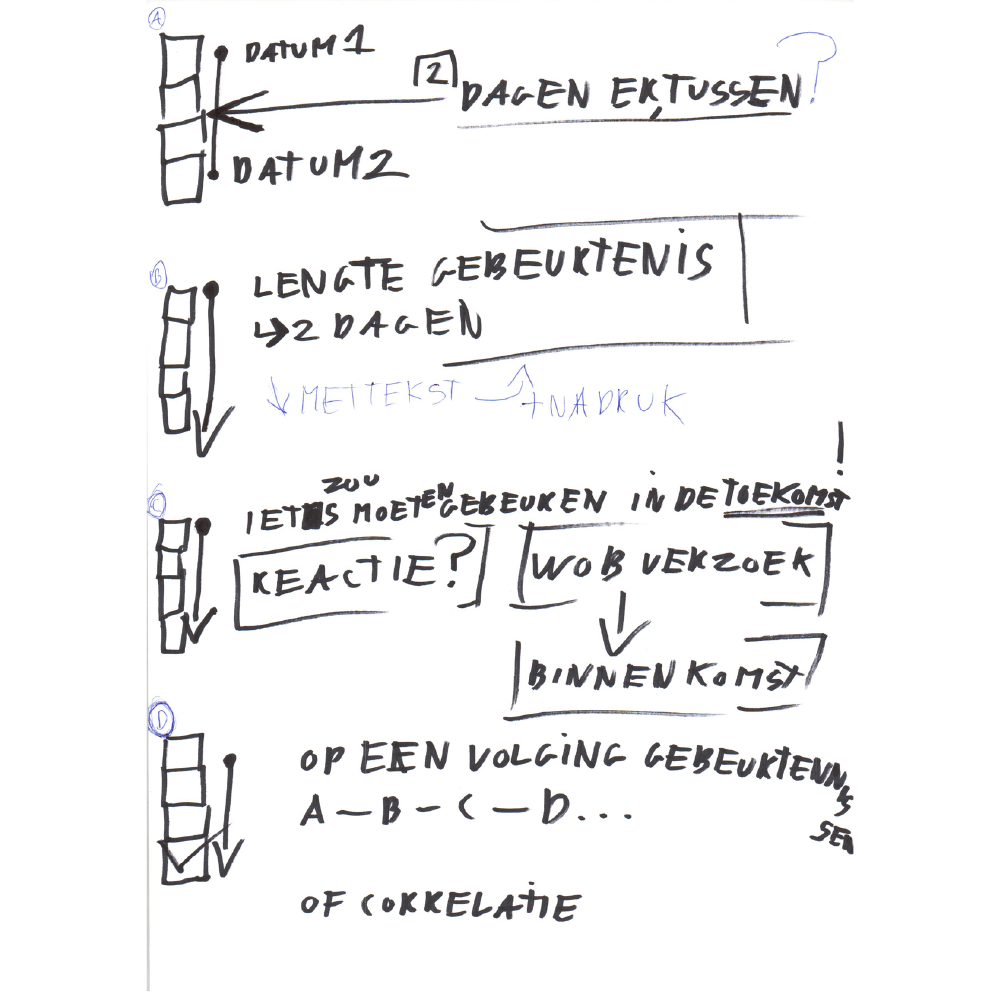 A
DATUM 1
2 DAGEN ERTUSSEN?
DATUM 2
B
LENGTE GEBEURTENIS
↳ 2 DAGEN
↓ MET TEKST + NADRUK
C
IETS ZOU MOETEN GEBEUREN IN DE TOEKOMST!
REACTIE?
WOB VERZOEK
↓
BINNENKOMST
D
OP EEN VOLGING GEBEURTENNISSEN
A — B — C — D...
OF CORRELATIE